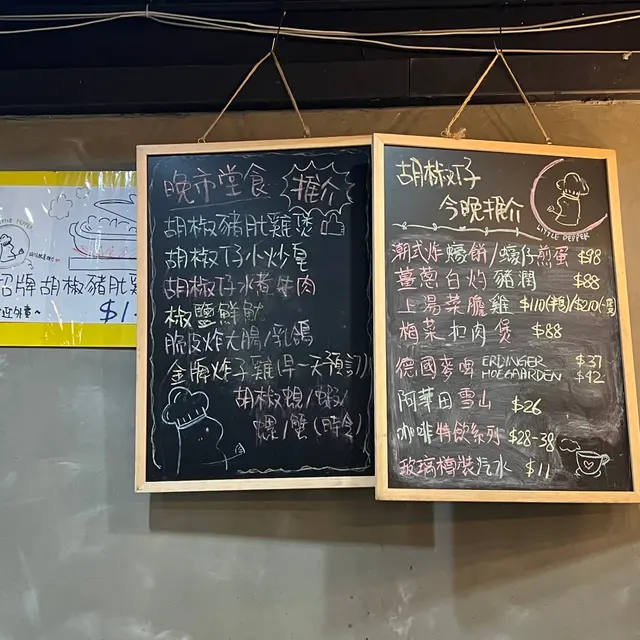 招牌胡椒豬肚雞
$1
晚市堂食 推介
胡椒豬肚雞煲
胡椒仔小炒皇
胡椒仔水煮牛肉
椒鹽鮮魷
脆皮炸大腸/乳鴿
金牌炸子雞(早一天預訂)
胡椒蜆/蝦/
螺/蟹(時令)
胡椒仔
今晚推介
LITTLE PEPPER
潮式炸蠔餅/蠔仔煎蛋 $98
薑蔥白灼豬潤 $88
上湯菜膽雞 $110(半隻)/$210(一隻)
梅菜扣肉煲 $88
德國麥啤 ERDINGER $37
HOEGAARDEN $42
阿華田雪山 $26
咖啡特飲系列 $28-38
玻璃樽裝汽水 $11